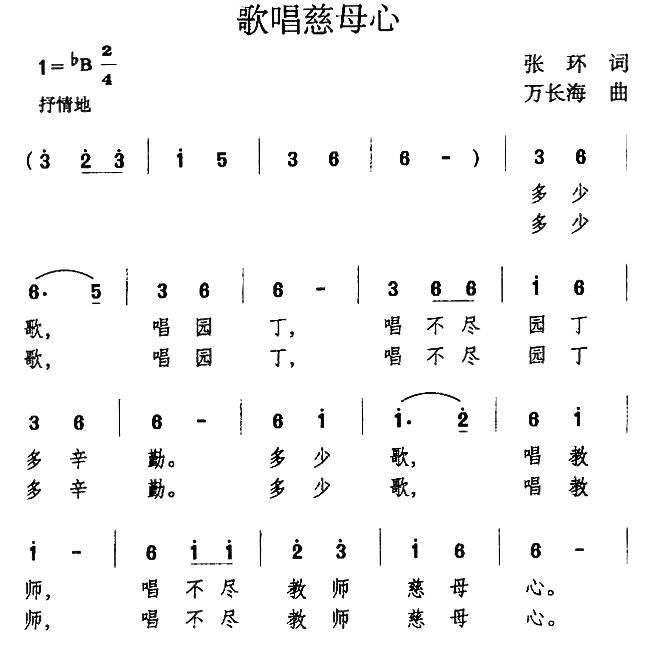 歌唱慈母心
1=♭B 2/4
张 环 词
抒情地
万长海 曲
(3̇ 2̇ 3̇ | 1̇ 5 | 3 6 | 6 - ) | 3 6 |
多 少
多 少
6· 5 | 3 6 | 6 - | 3 6 6 | 1̇ 6 |
歌, 唱 园 丁, 唱 不 尽 园 丁
歌, 唱 园 丁, 唱 不 尽 园 丁
3 6 | 6 - | 6 1̇ | 1̇· 2̇ | 6 1̇ |
多 辛 勤。 多 少 歌, 唱 教
多 辛 勤。 多 少 歌, 唱 教
1̇ - | 6 1̇ 1̇ | 2̇ 3̇ | 1̇ 6 | 6 - |
师, 唱 不 尽 教 师 慈 母 心。
师, 唱 不 尽 教 师 慈 母 心。